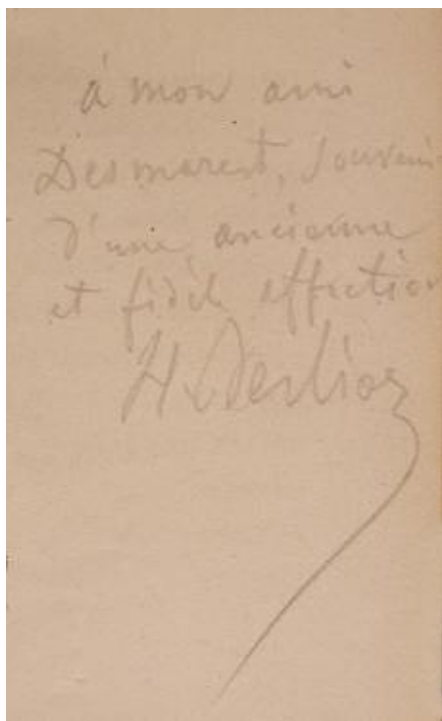 à mon ami
Desmarest, souvenir
d'une ancienne
et fidèle affection
H. Berlioz